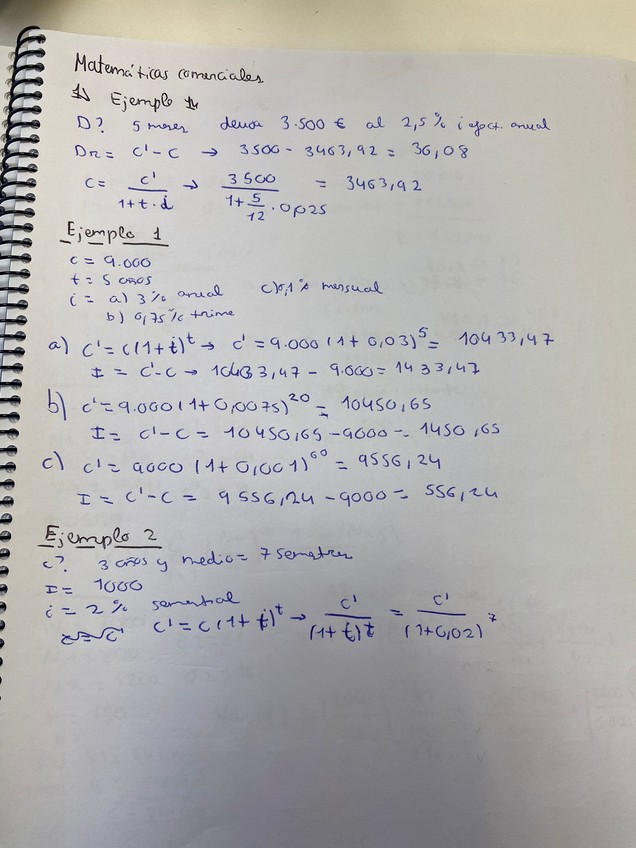 Matemáticas comerciales
1) Ejemplo 1
D? 5 meses deuda 3.500 € al 2,5% i efect. anual
Dr = C' - C → 3500 - 3463,92 = 36,08
C = C' / 1+t·i → 3500 / 1+5/12·0,025 = 3463,92
Ejemplo 1
c = 9.000
t = 5 años
i = a) 3% anual c) 0,1% mensual
b) 0,75% trime
a) C' = C(1+i)^t → C' = 9.000 (1+0,03)^5 = 10433,47
I = C'-C → 10433,47 - 9.000 = 1433,47
b) C' = 9.000 (1+0,0075)^20 = 10450,65
I = C'-C = 10450,65 - 9000 = 1450,65
c) C' = 9000 (1+0,001)^60 = 9556,24
I = C'-C = 9556,24 - 9000 = 556,24
Ejemplo 2
c? 3 años y medio = 7 semestres
I = 1000
i = 2% semestral
C' = C (1+i)^t → C' / (1+t)^t = C' / (1+0,02)^7